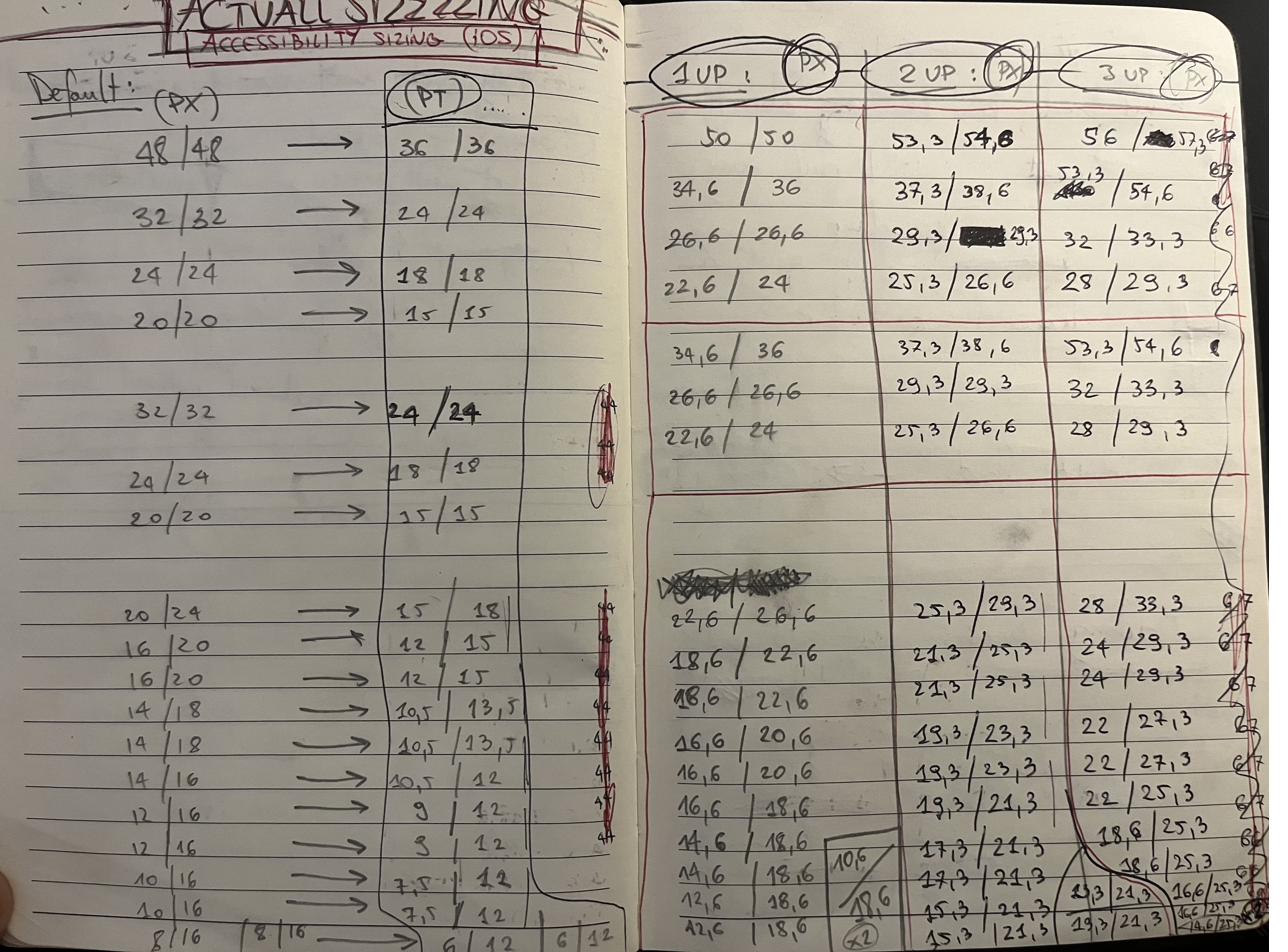 ACTUALL SIZZZZING
ACCESSIBILITY SIZING (iOS)
Default: (PX) (PT) .....
48/48 → 36/36
32/32 → 24/24
24/24 → 18/18
20/20 → 15/15
32/32 → 24/24
24/24 → 18/18
20/20 → 15/15
20/24 → 15/18
16/20 → 12/15
16/20 → 12/15
14/18 → 10,5/13,5
14/18 → 10,5/13,5
14/16 → 10,5/12
12/16 → 9/12
12/16 → 9/12
10/16 → 7,5/12
10/16 → 7,5/12
8/16 8/16 → 6/12 6/12
1 UP: PX 2 UP: PX 3 UP: PX
50/50 53,3/54,6 56/57,3
34,6/36 37,3/38,6 53,3/54,6
26,6/26,6 29,3/29,3 32/33,3
22,6/24 25,3/26,6 28/29,3
34,6/36 37,3/38,6 53,3/54,6
26,6/26,6 29,3/29,3 32/33,3
22,6/24 25,3/26,6 28/29,3
22,6/26,6 25,3/29,3 28/33,3
18,6/22,6 21,3/25,3 24/29,3
18,6/22,6 21,3/25,3 24/29,3
16,6/20,6 19,3/23,3 22/27,3
16,6/20,6 19,3/23,3 22/27,3
16,6/18,6 19,3/21,3 22/25,3
14,6/18,6 17,3/21,3 18,6/25,3
14,6/18,6 17,3/21,3 18,6/25,3
12,6/18,6 15,3/21,3 13,3/21,3 16,6/25,3
12,6/18,6 15,3/21,3 13,3/21,3 16,6/25,3
10,6/18,6 x2 14,6/25,3